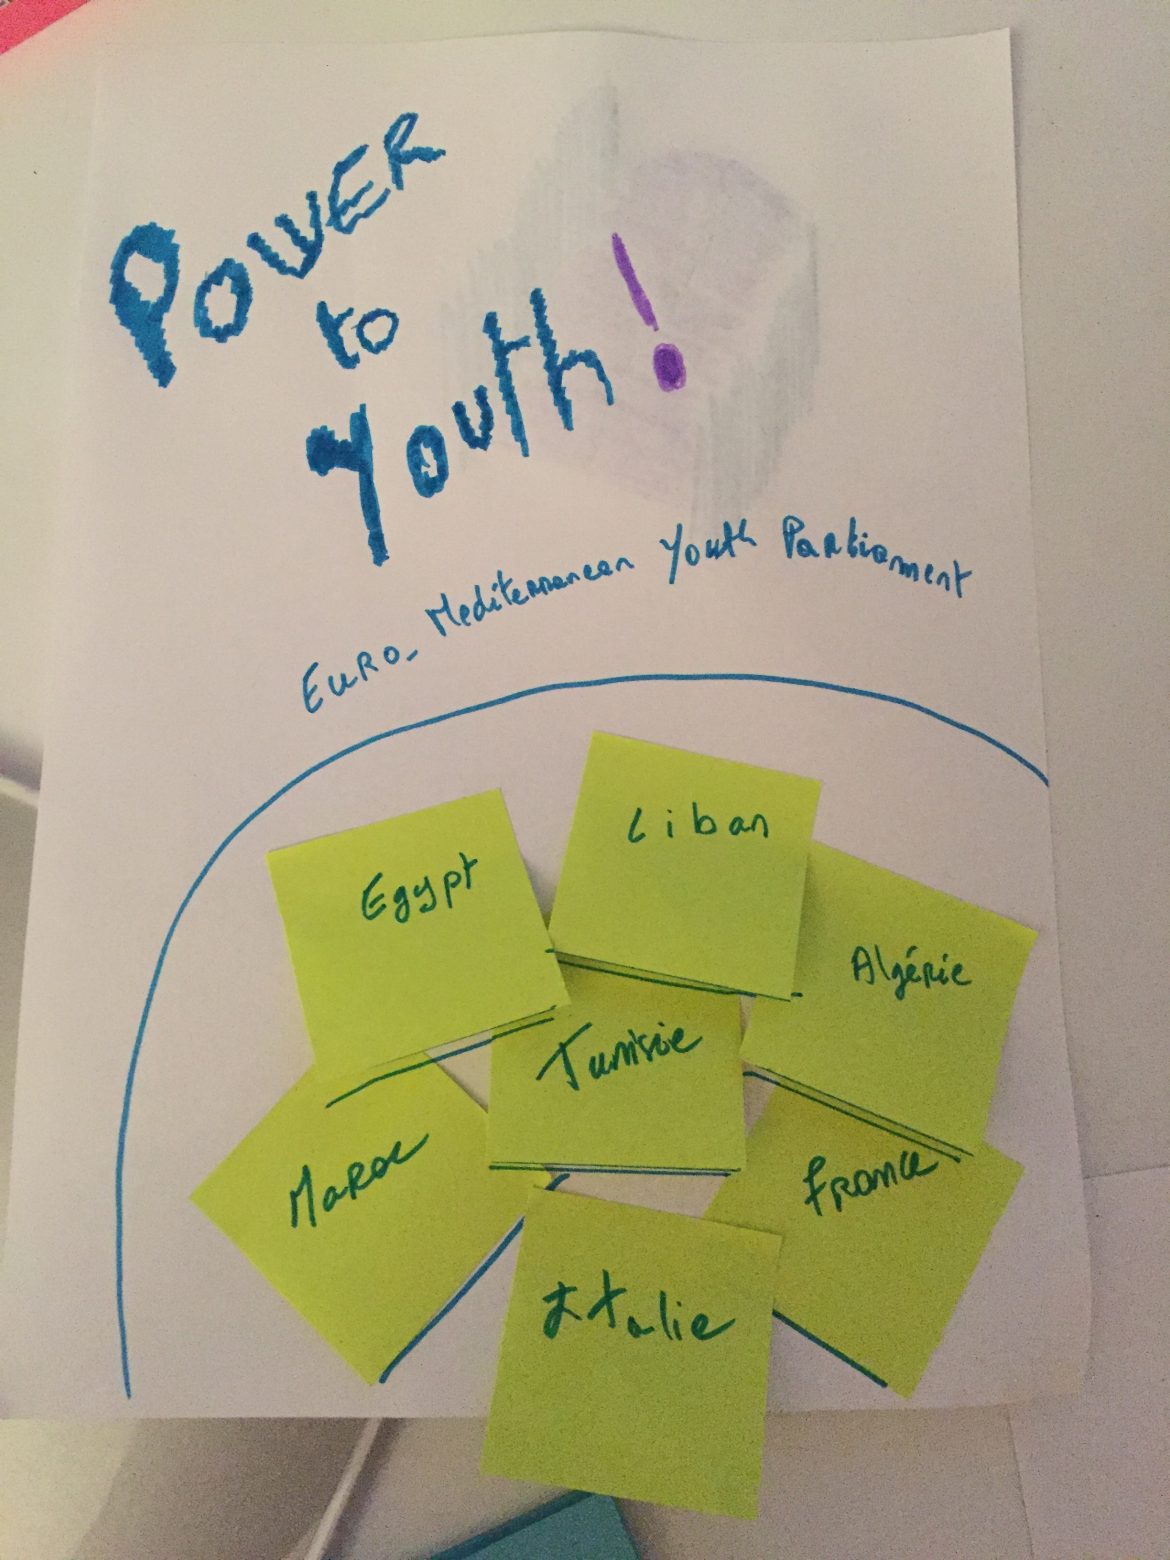 POWER
to
Youth!
EURO_ Mediterranean Youth Parliament
Liban
Egypt
Algérie
Tunisie
Maroc
France
Italie